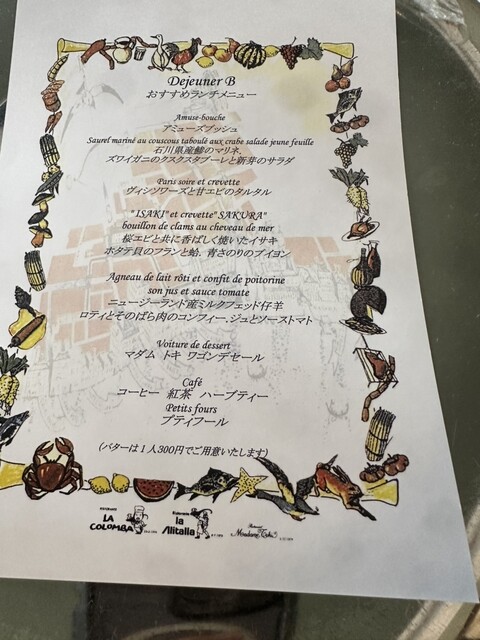 Dejeuner B
おすすめランチメニュー
Amuse-bouche
アミューズブッシュ
Saurel mariné au couscous taboulé aux crabe salade jeune feuille
石川県産鯵のマリネ、
ズワイガニのクスクスタブーレと新芽のサラダ
Paris soire et crevette
ヴィシソワーズと甘エビのタルタル
"ISAKI" et crevette" SAKURA"
bouillon de clams au cheveau de mer
桜エビと共に香ばしく焼いたイサキ
ホタテ貝のフランと蛤、青さのりのブイヨン
Agneau de lait rôti et confit de poitorine
son jus et sauce tomate
ニュージーランド産ミルクフェッド仔羊
ロティとそのばら肉のコンフィー、ジュとソーストマト
Voiture de dessert
マダム トキ ワゴンデセール
Café
コーヒー 紅茶 ハーブティー
Petits fours
プティフール
(バターは1人300円でご用意いたします)
LA COLOMBA
la Alitalia
Madame Toki